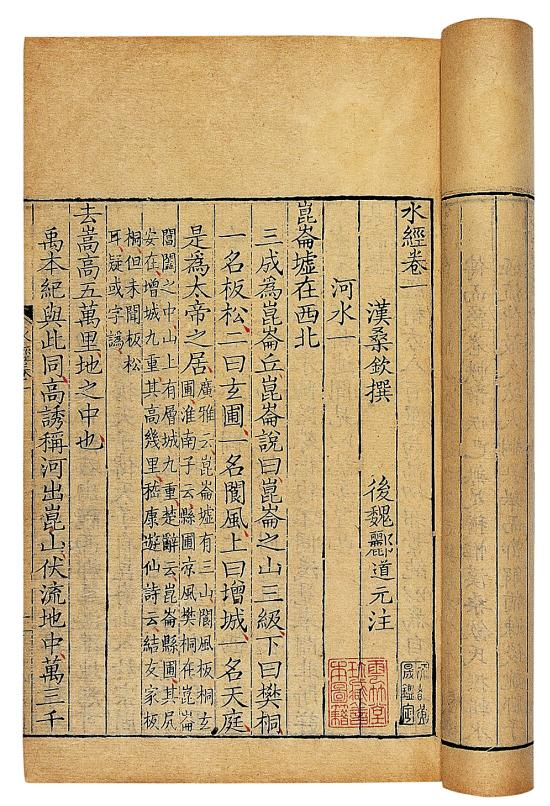 水經卷一
漢桑欽撰 後魏酈道元注
河水一
崑崙墟在西北
三成爲崑崙丘崑崙說曰崑崙之山三級下曰樊桐
一名板松二曰玄圃一名閬風上曰增城一名天庭
是爲太帝之居
廣雅云崑崙墟有三山閬風板桐玄
圃淮南子云縣圃涼風樊桐在崑崙
閶闔之中山上有層城九重楚辭云崑崙縣圃其尻
安在增城九重其高幾里嵇康遊仙詩云結友家板
桐但未聞板松
耳疑或字譌
去嵩高五萬里地之中也
禹本紀與此同高誘稱河出崑山伏流地中萬三千